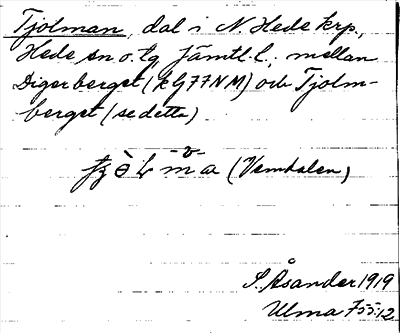 Tjolman, dal i N. Hede krp.,
Hede sn o. tg Jämtl. l.; mellan
Digerberget (k G77NM) och Tjolm-
berget (se detta)
(Vemdalen)
S. Åsander 1919
Ulma 755:12